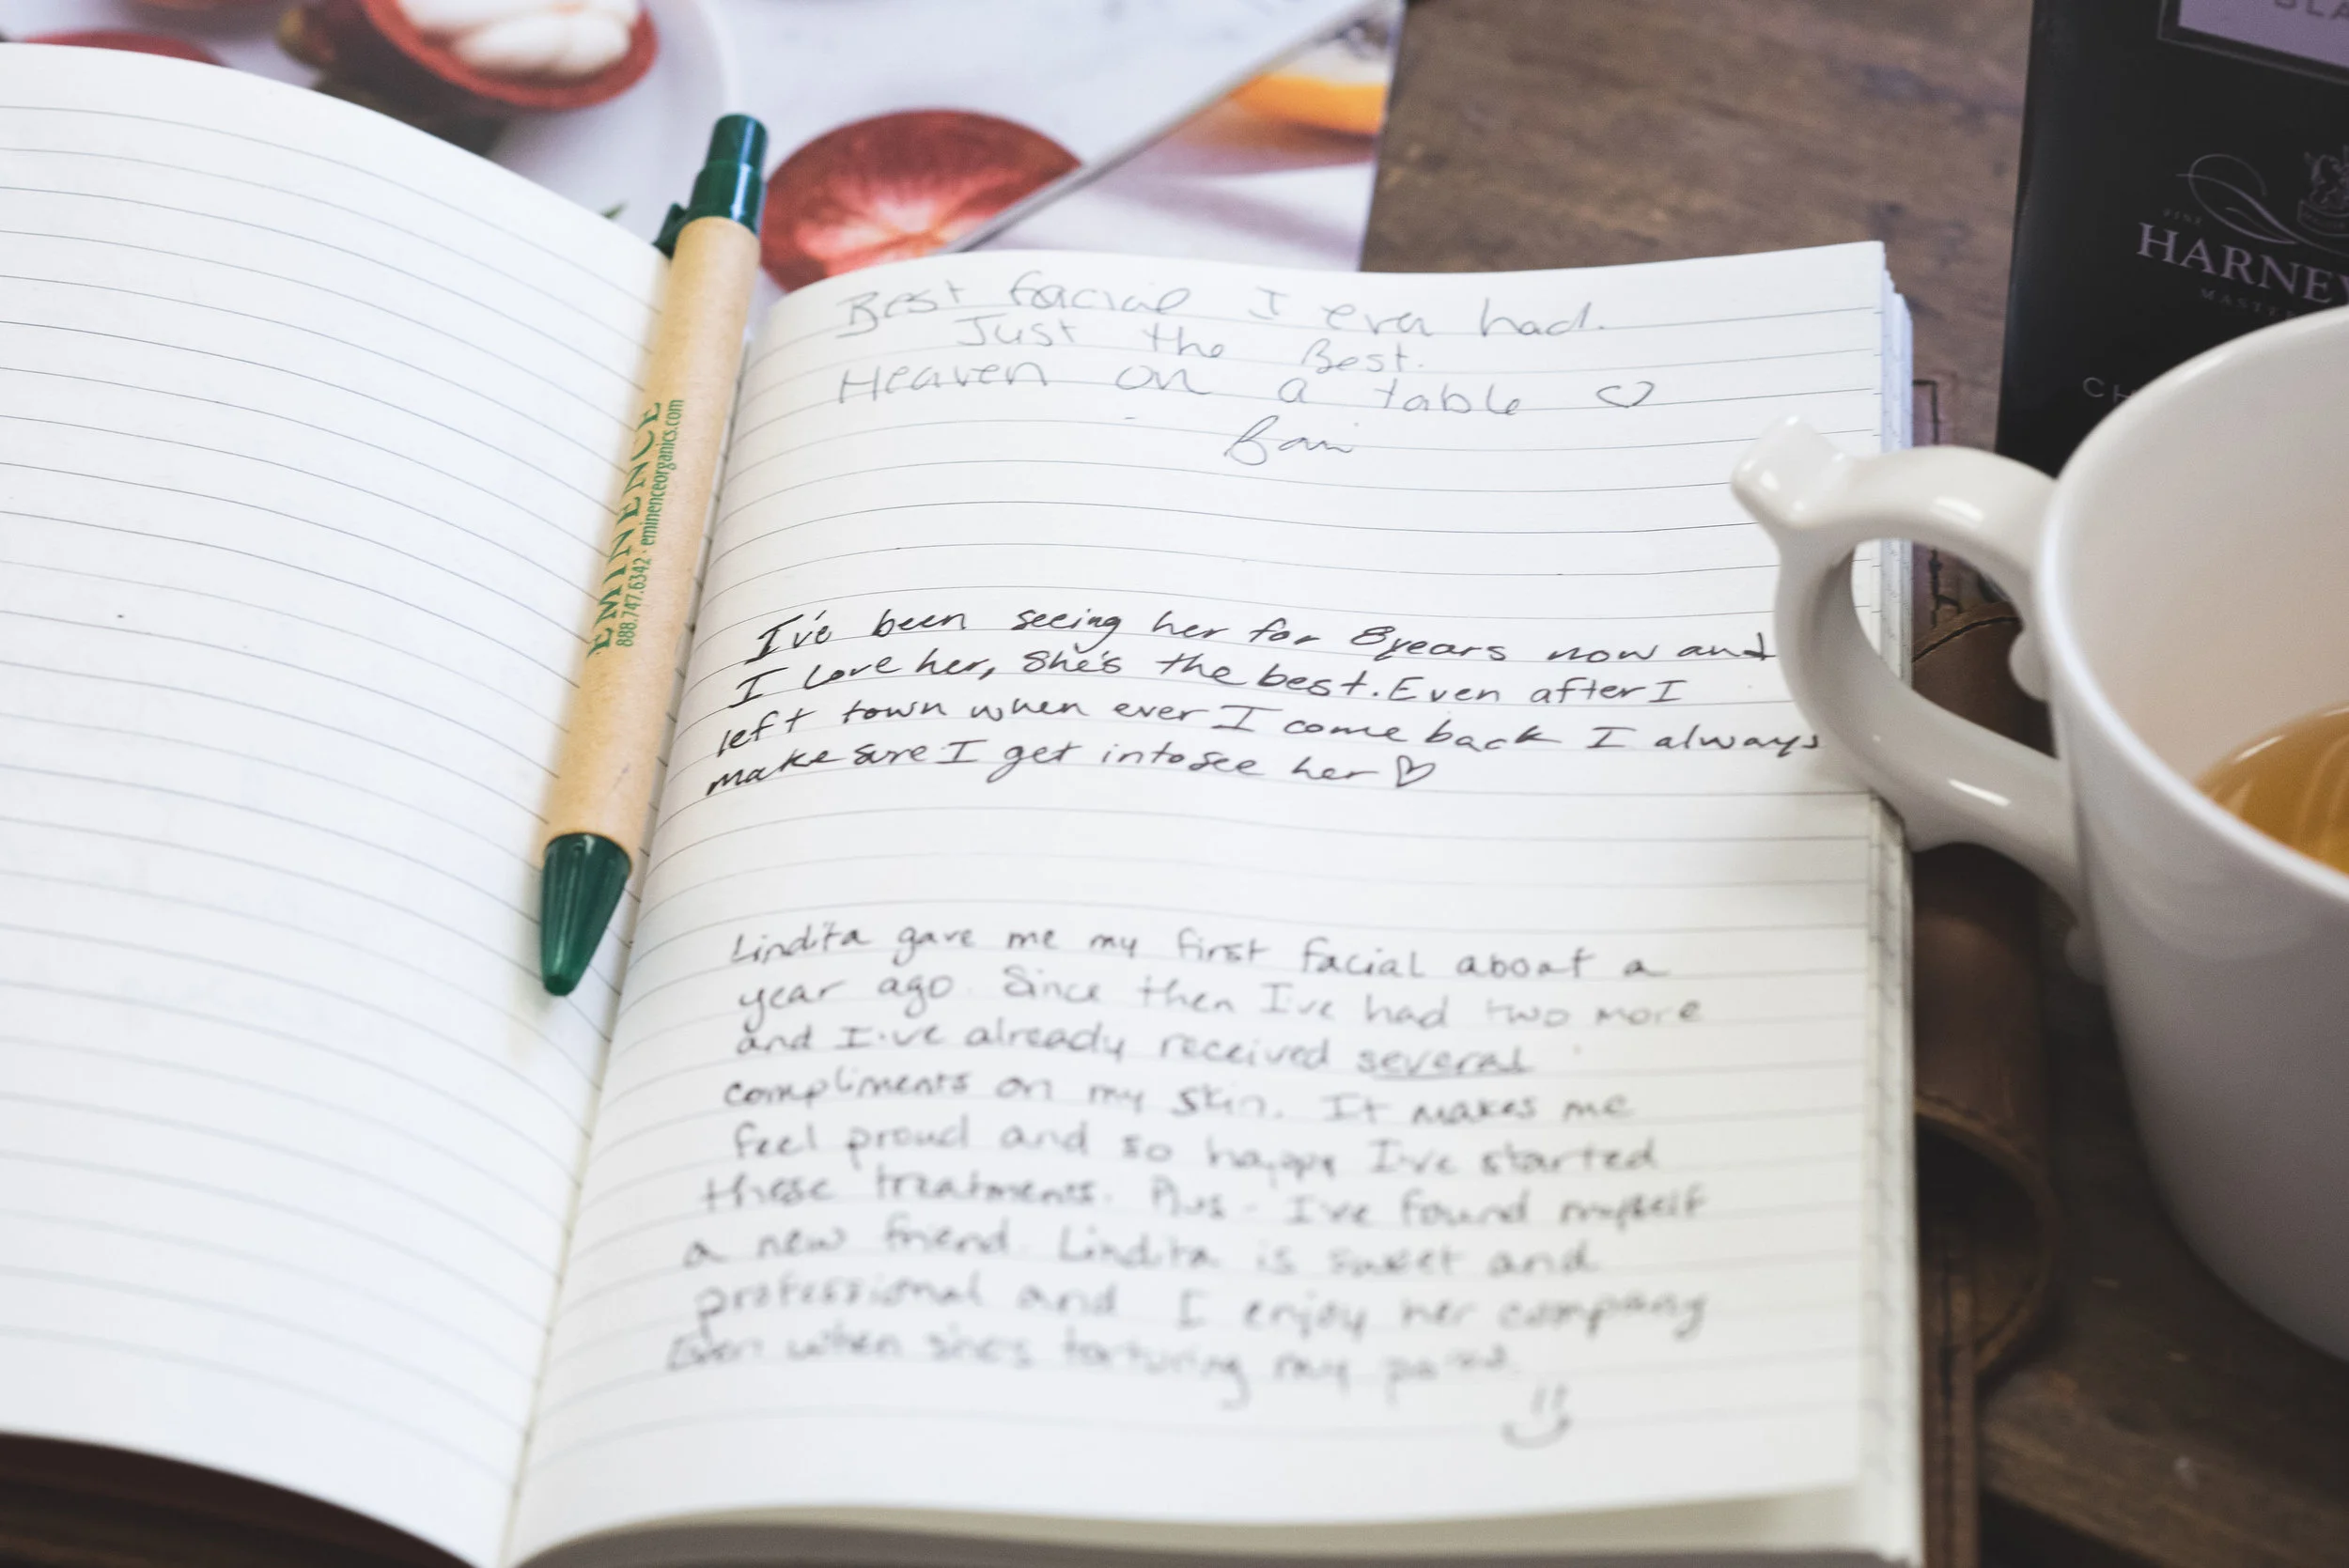 Best facial I ever had.
Just the Best.
Heaven on a table ♡
I've been seeing her for 8years now and
I Love her, She's the best. Even after I
left town when ever I come back I always
make sure I get into see her ♡
Lindita gave me my first facial about a
year ago. Since then I've had two more
and I've already received several
compliments on my skin. It makes me
feel proud and so happy I've started
these treatments. Plus - I've found myself
a new friend. Lindita is sweet and
professional and I enjoy her company
Even when she's torturing my
EMINENCE
888.747.6342 · eminenceorganics.com
HARNEY